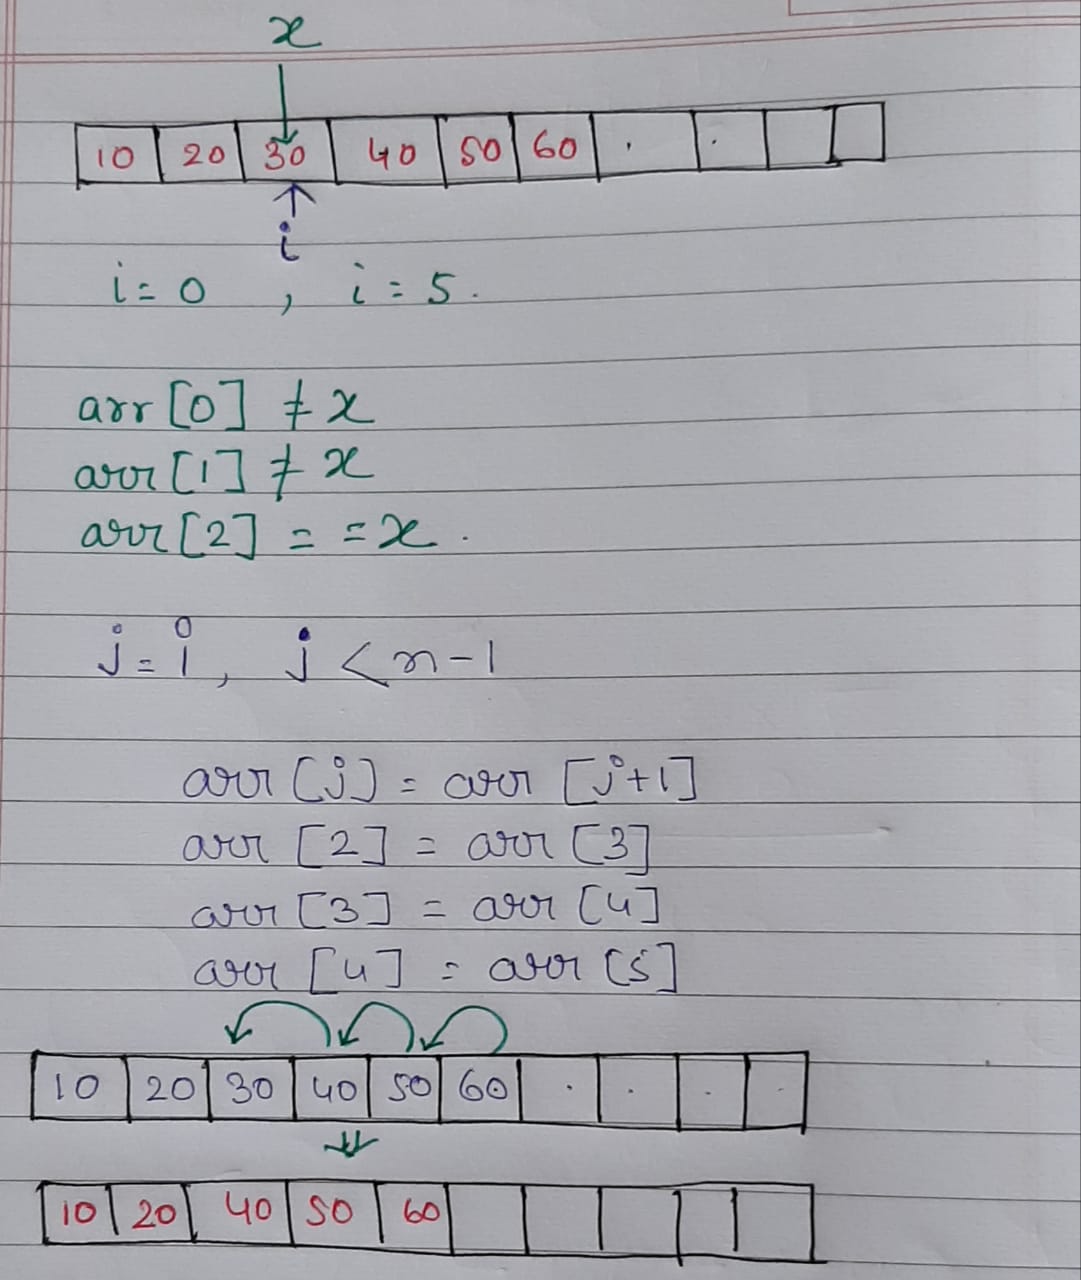 x
10 20 30 40 50 60 . .
i
i = 0 , i = 5.
arr [0] ≠ x
arr [1] ≠ x
arr [2] = = x.
j = i, j < n-1
arr [j] = arr [j+1]
arr [2] = arr [3]
arr [3] = arr [4]
arr [4] = arr [5]
10 20 30 40 50 60 . . . .
10 20 40 50 60